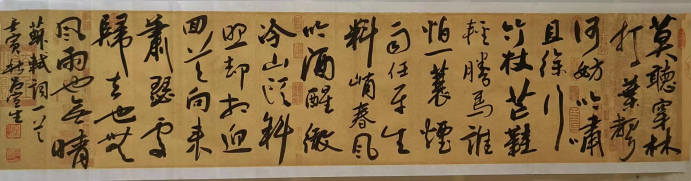 莫聽穿林
打葉聲
何妨吟嘯
且徐行
竹杖芒鞋
輕勝馬誰
怕一蓑煙
雨任平生
料峭春風
吹酒醒微
冷山頭斜
照却相迎
回首向來
蕭瑟處
歸去也無
風雨也無晴
蘇軾詞